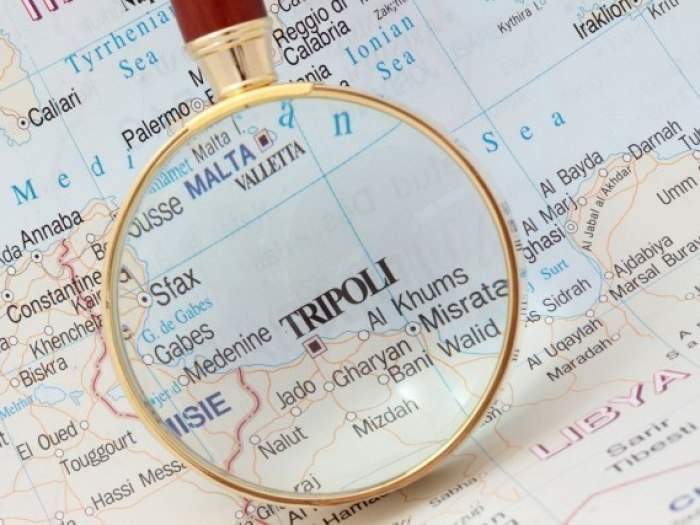 Tyrrhenian
Sea
Reggio di
Calabria
Ionian
Sea
Kythira I.
Iraklion
Kriti
Caliari
Palermo
Malta
MALTA
VALLETTA
M e d i
a n
S e a
Annaba
ousse
Constantine
Khenchela
Biskra
El Oued
Touggourt
Sfax
G. de Gabes
Gabes
Medenine
TRIPOLI
Al Khums
Misrata
Jado
Gharyan
Bani Walid
Nalut
Mizdah
ISIE
Al Bayda
Al Marj
ghasi
Darnah
Al Jabal al Akhdar
Umm
Surt
Ajdabiya
Marsal Burayqah
Sidrah
Al Uqaylah
Maradah
LIBYA
Sarir
Tibesti
Hassi Messa
Sabha